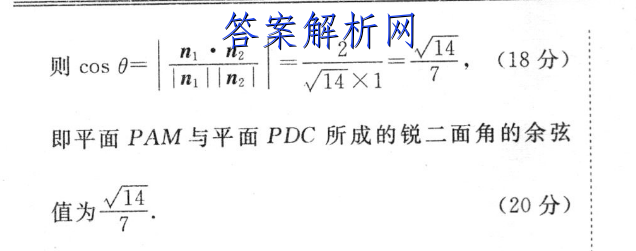 答案解析网
则 cos θ=|n₁·n₂/|n₁||n₂||=2/√14×1=√14/7，（18 分）
即平面 PAM 与平面 PDC 所成的锐二面角的余弦
值为√14/7. （20 分）